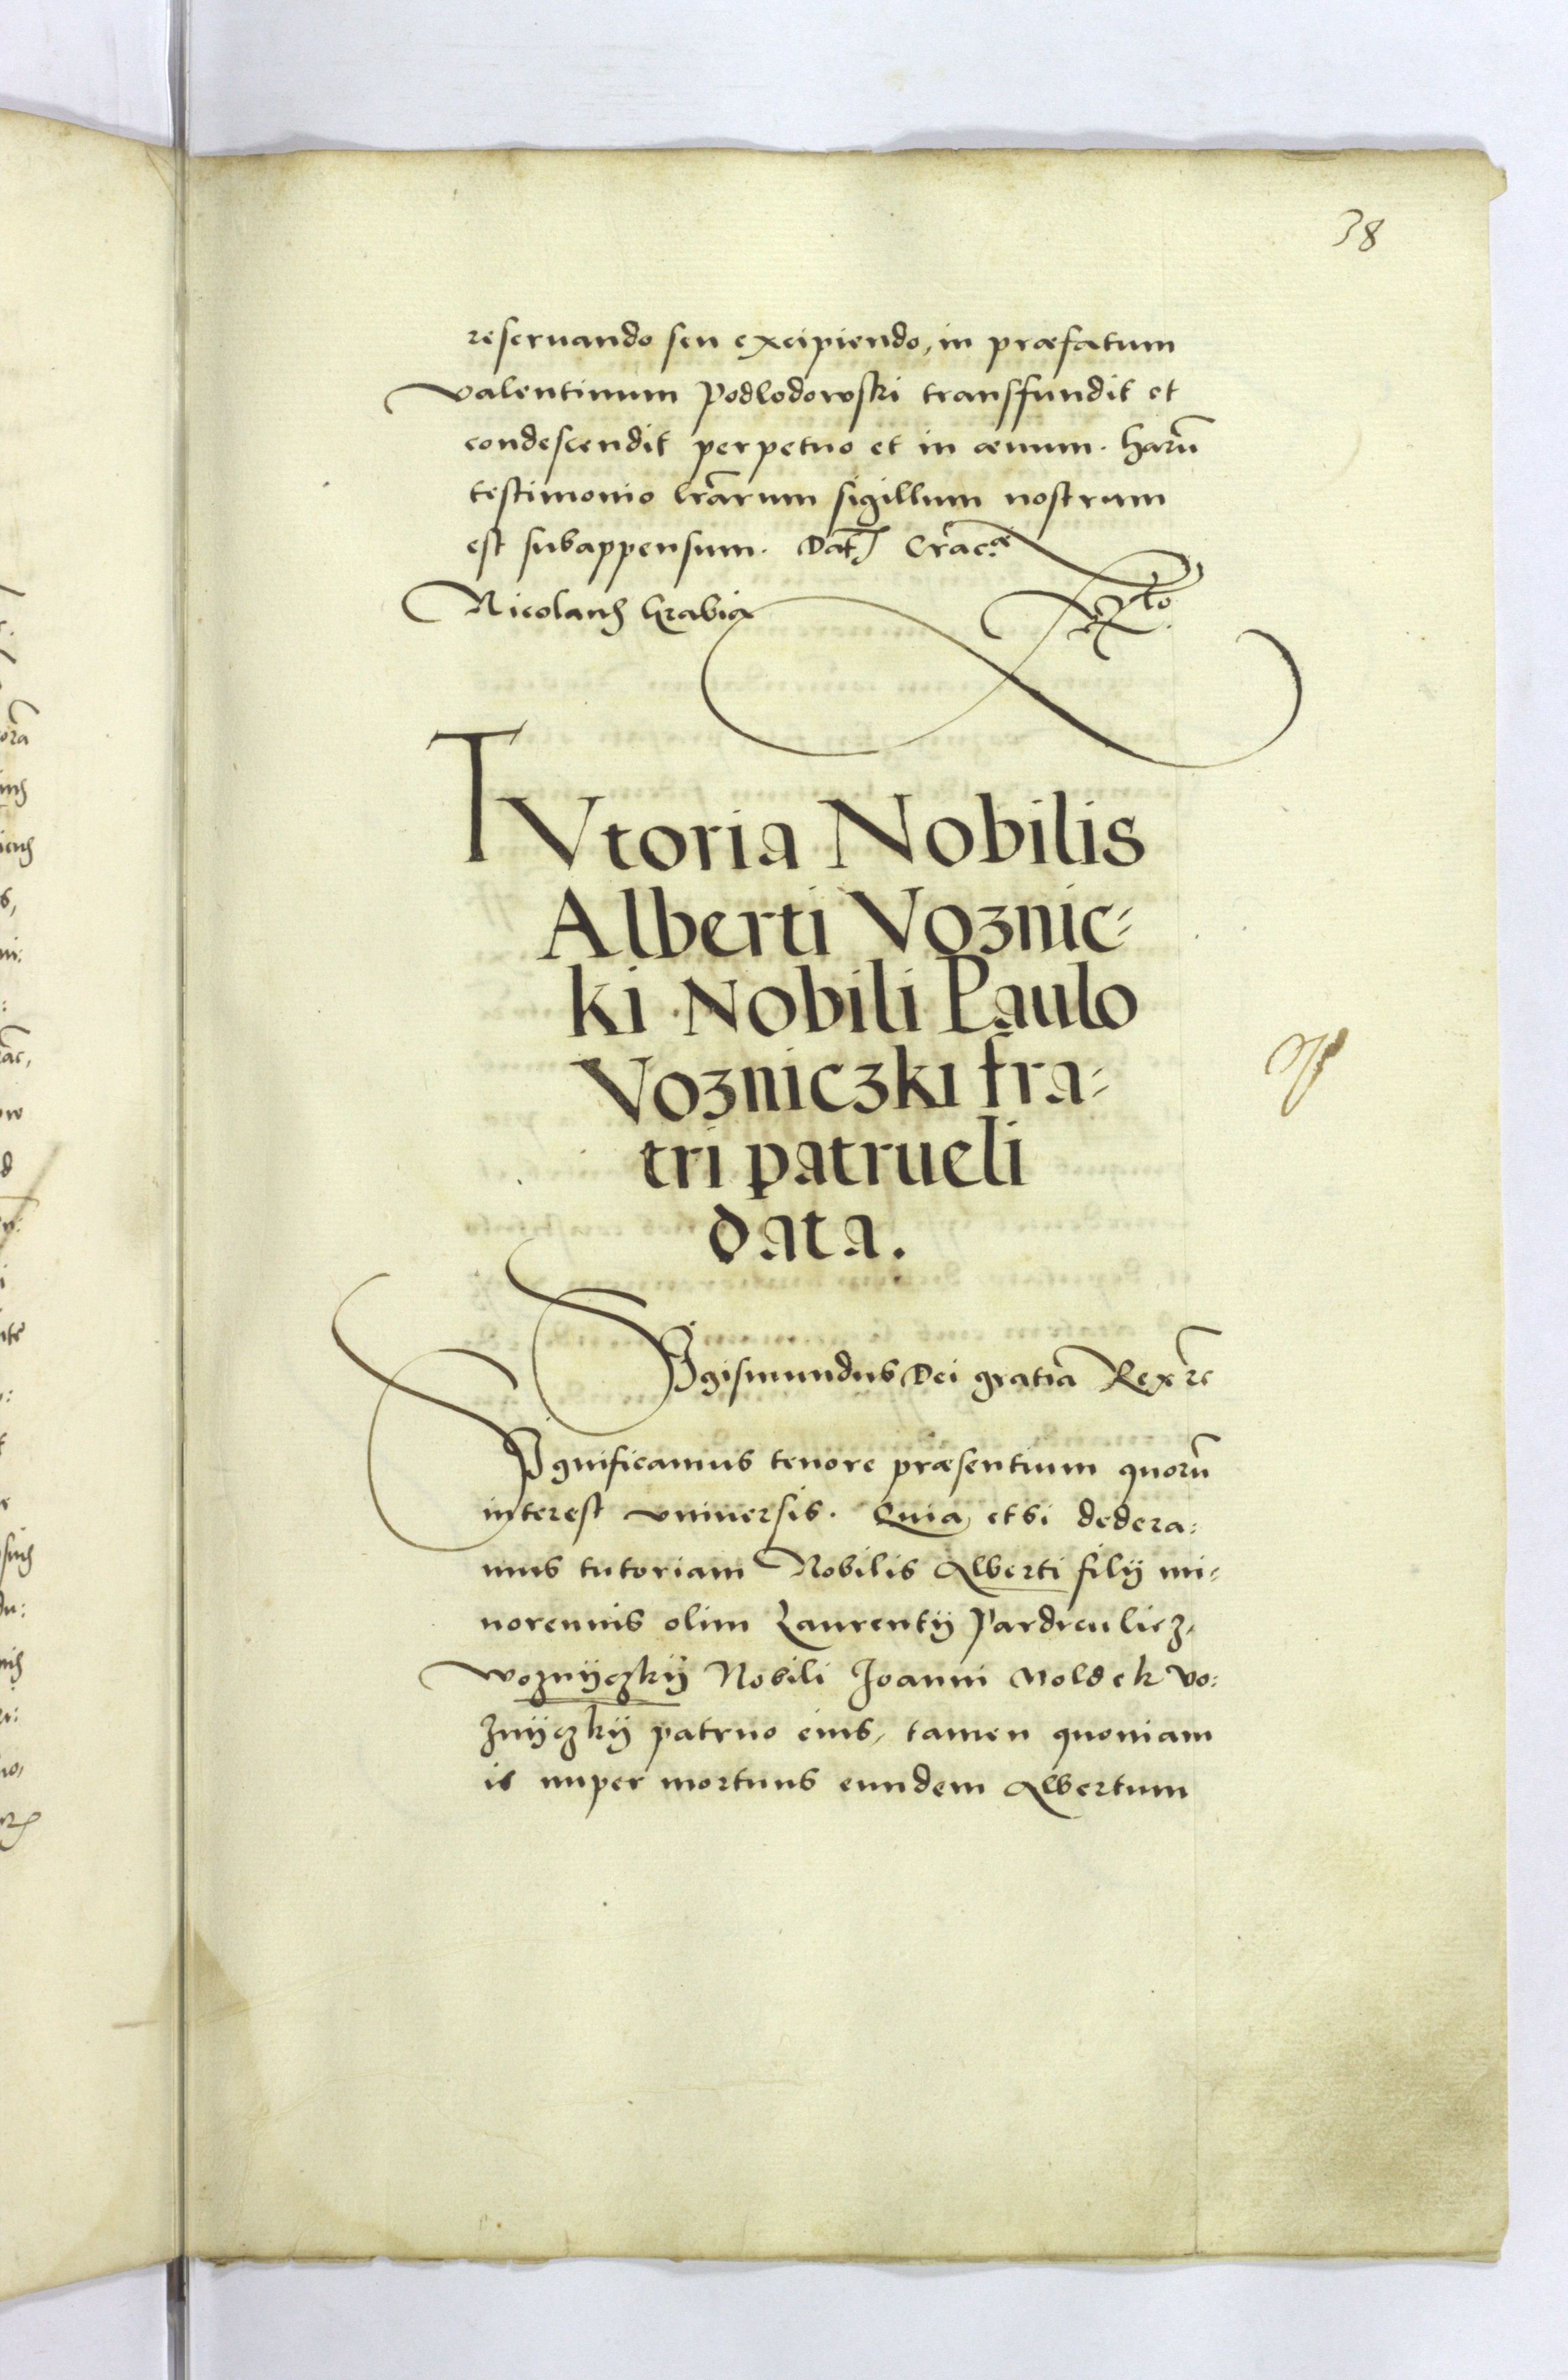 38
reseruando seu excipiendo, in præfatum
valentinum Podlodowski transfundit et
condescendit perpetuo et in æuum. harū
testimonio lr̄arum sigillum nostrum
est subappensum. Dat Cracæ
Nicolaus hrabia sszt
TVtoria Nobilis
Alberti Voznic=
ki Nobili Paulo
Vozniczki fra=
tri patrueli
data.
Sigismundus Dei gratia Rex rc
Significamus tenore præsentium quorū
interest vniuersis. Quia etsi dedera=
mus tutoriam Nobilis Alberti filij mi=
norennis olim Laurentij Pardreulicz,
woznÿczkÿ Nobili Joanni Moldek Vo:
znÿczkÿ patruo eius, tamen quoniam
is nuper mortuus eundem Albertum